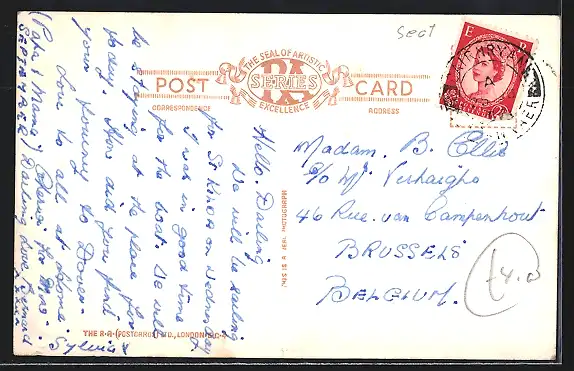 Seat
THE SEAL OF ARTISTIC
RA
SERIES
EXCELLENCE
POST CARD
CORRESPONDENCE
ADDRESS
E R
Hello, Darling
We will be sailing
for St Kitts on Wednesday
I was in good time
for the boat. We will
be staying at the place for
today. How did you find
your journey to Dover.
Love to all at home.
Sylvia
Madam. B. Ellis
c/o Mr Verhaigho
46 Rue. van Campenhout
BRUSSELS
BELGIUM.
£4.0
THIS IS A REAL PHOTOGRAPH
THE R.A. (POSTCARDS) LTD., LONDON, E.C.4
(Papa & Mama)
Darling Love Bernard
xxxx